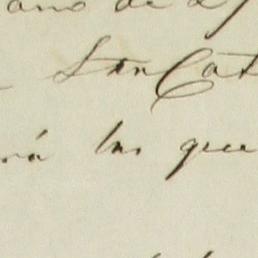 ano de 2
San Cat
rá las que